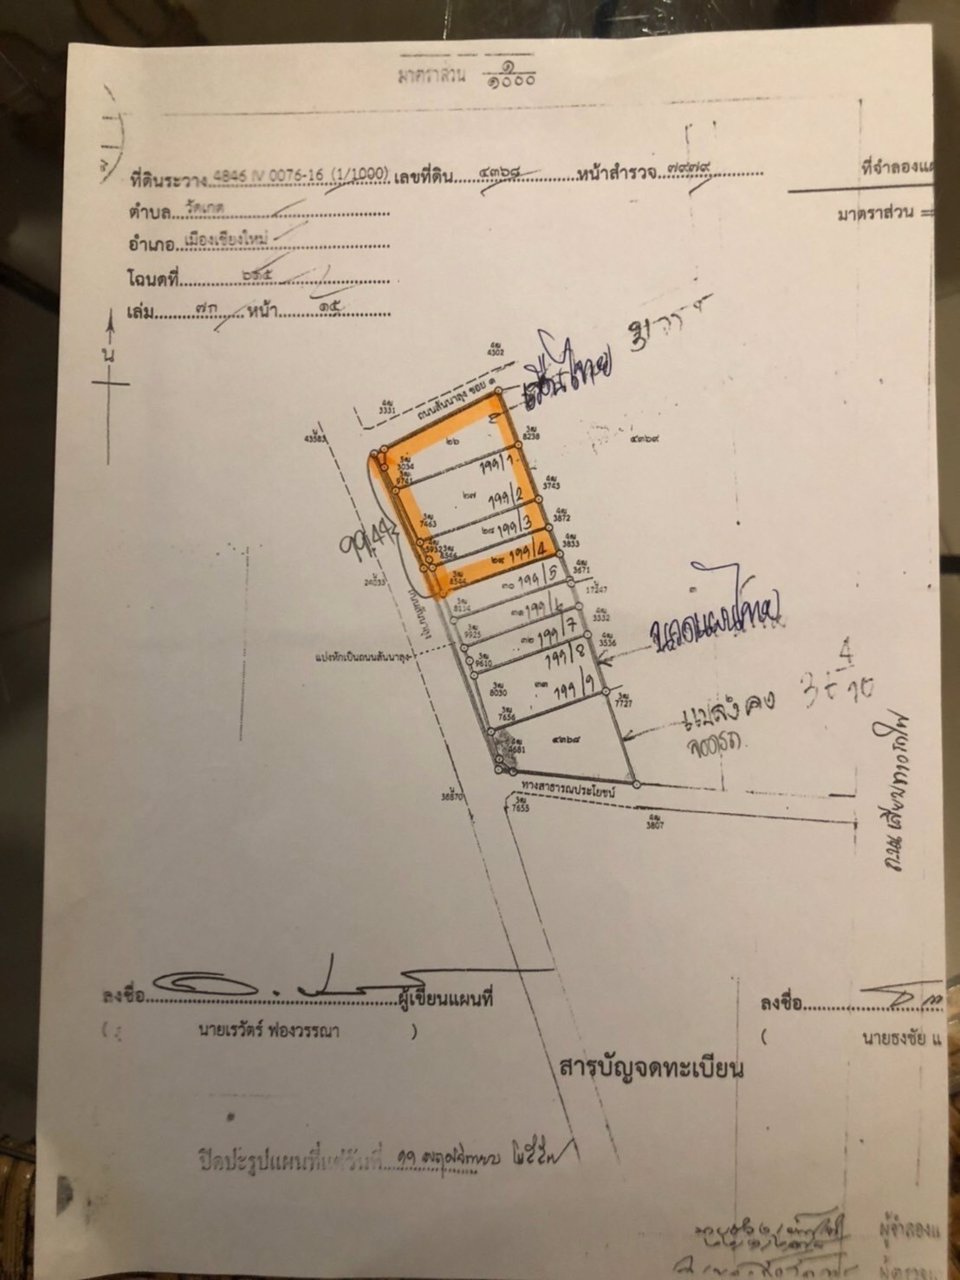 มาตราส่วน ๑/๑๐๐๐
ที่ดินระวาง 4846 IV 0076-16 (1/1000) เลขที่ดิน ๔๓๖๘ หน้าสำรวจ ๗๙๗๙
ที่จำลองแผ
ตำบล วัดเกต
มาตราส่วน =
อำเภอ เมืองเชียงใหม่
โฉนดที่ ๖๑๕
เล่ม ๗ก หน้า ๑๕
น
4ฒ 4302
ถนนสันนาลุง ซอย ๑
4ฒ 3331
43583
๒๖
3ฒ 8238
๔๓๖๙
3ฒ 3034
3ฒ 9741
199/1
๒๗
199/2
4ฒ 5743
3ฒ 7463
๒๘
199/3
4ฒ 3872
99.44
8546
๒๙
199/4
4ฒ 3833
24033
3ฒ 4544
๓๐
199/5
4ฒ 3671
17247
ถนนสันนาลุง
3ฒ 8114
๓๑
199/6
4ฒ 3332
3ฒ 9925
๓๒
199/7
3ฒ 3536
แบ่งหักเป็นถนนสันนาลุง
3ฒ 9610
199/8
นวดแผนไทย
3ฒ 8030
๓๓
199/9
3ฒ 7727
3ฒ 7656
แปลง คง
จอดรถ
๔๓๖๘
4ฒ 4681
ทางสาธารณประโยชน์
38870
3ฒ 7655
4ฒ 3807
ถนน เลียบทางรถไฟ
ลงชื่อ ผู้เขียนแผนที่
ลงชื่อ
นายเรวัตร์ ฟองวรรณา )
( นายธงชัย แ
สารบัญจดทะเบียน
ปิดประรูปแผนที่แต่วันที่ ๑๑ พฤศจิกายน ๒๕๕๓
ผู้จำลองแ